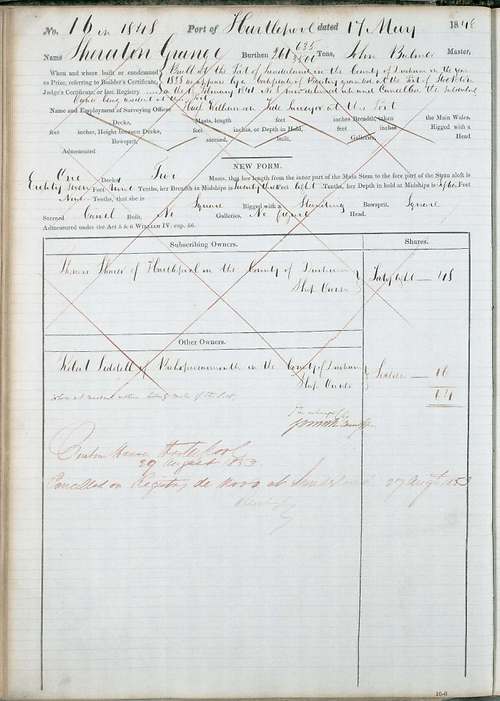 No. 16 in 1848 Port of Hartlepool dated 17 May 1848
Name Sheraton Grange Burthen 261 Tons, John Master,
When and where built or condemned Built at the Port of Sunderland in the County of Durham in the year
as Prize, referring to Builder's Certificate, 1838 as appears by a Certificate of Registry granted at the Port of Stockton
Judge's Certificate, or last Registry February 1841 No 8 now delivered up and Cancelled the Subscribing
Owner being resident at this Port
Name and Employment of Surveying Officer William Tide Surveyor at this Port
Decks, Masts, length feet inches, Breadth taken the Main Wales,
feet inches, Height between Decks, feet inches, or Depth in Hold, feet inches Rigged with a
Bowsprit, Sterned, built, Galleries, Head.
Admeasured
NEW FORM.
One Decks Two Masts, that her length from the inner part of the Main Stem to the fore part of the Stern aloft is
Eighty Seven Feet Nine Tenths, her Breadth in Midships is twenty Feet eight Tenths, her Depth in hold at Midships is Feet
Nine Tenths, that she is Square Rigged with a Standing Bowsprit, Square
Sterned Carvel Built, No Galleries, No figure Head.
Admeasured under the Act 5 & 6 WILLIAM IV. cap. 56.
Subscribing Owners. Shares.
Thomas of Hartlepool in the County of Durham
Ship Owner Forty eight — 48
Other Owners.
Robert Liddell of Bishopwearmouth in the County of Durham
Ship Owner Sixteen — 16
64
Custom House Hartlepool
29 August 1853
Cancelled on Registry de novo at Sunderland 27 Augt 1853